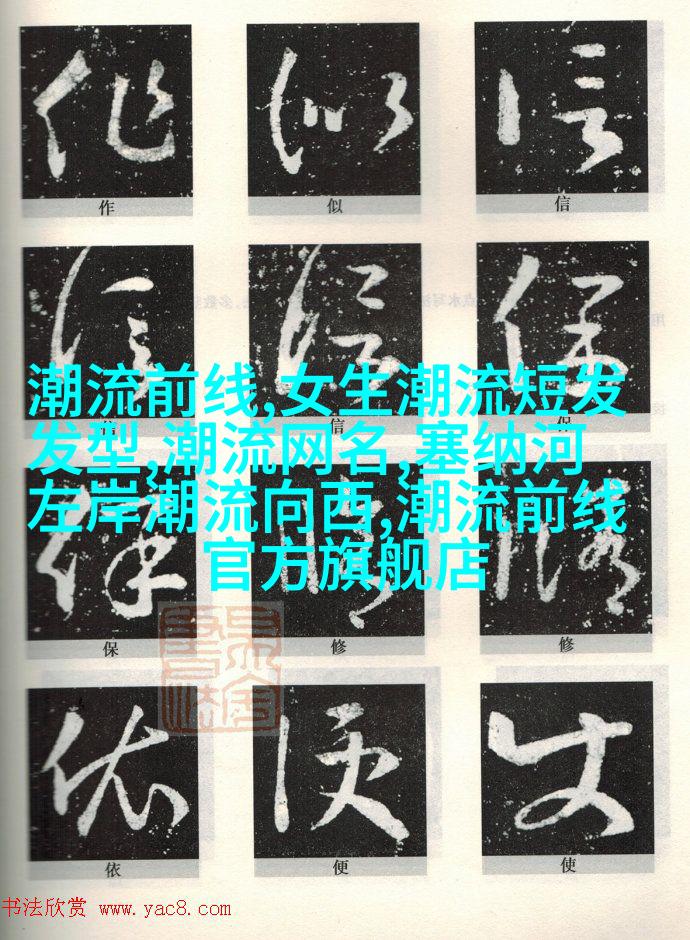 作 似 信
信 信 保
潮流前线,女生潮流短发
发型,潮流网名,塞纳河
左岸潮流向西,潮流前线
官方旗舰店
保 修 修
依 便 使
书法欣赏 www.yac8.com